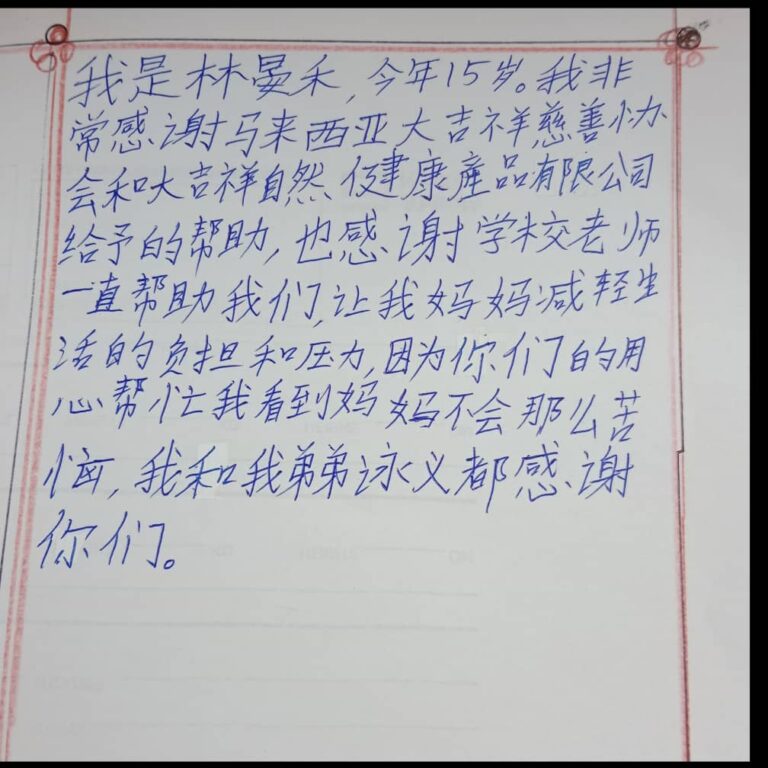 我是林晏禾，今年15岁。我非
常感谢马来西亚大吉祥慈善协
会和大吉祥自然健康產品有限公司
给予的帮助，也感谢学校老师
一直帮助我们，让我妈妈减轻生
活的负担和压力，因为你们的用
心帮忙我看到妈妈不会那么苦
恼，我和我弟弟泳义都感谢
你们。